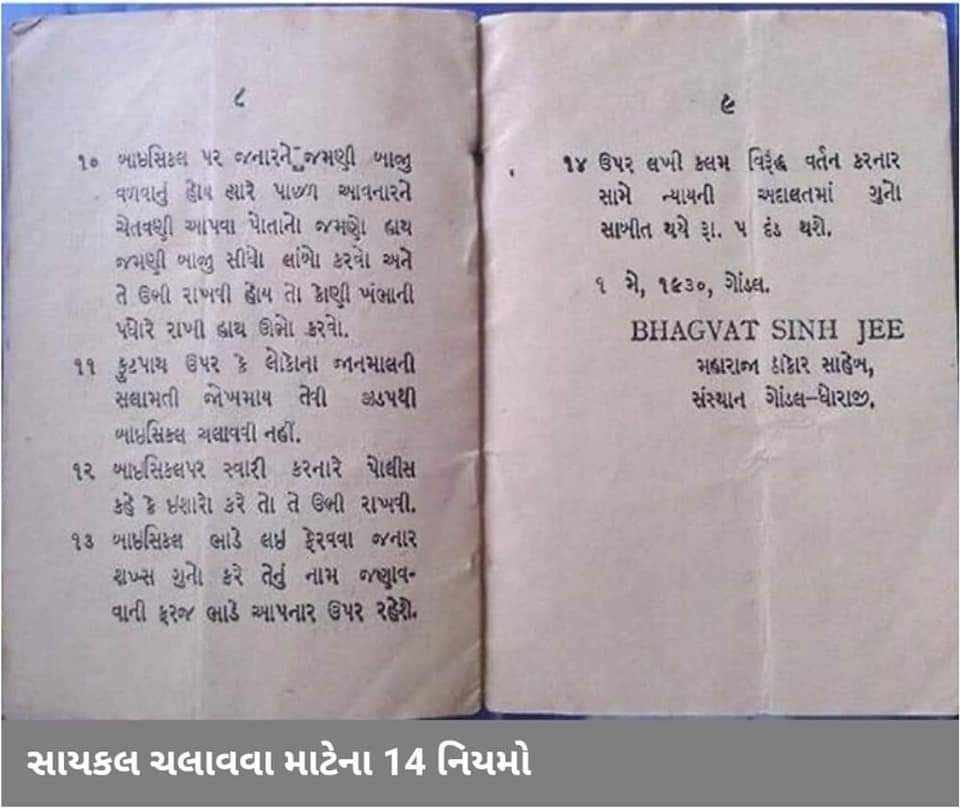 ૮
૧૦ બાઇસિકલ પર જનારને જમણી બાજુ
વળવાનું હોય ત્યારે પાછળ આવનારને
ચેતવણી આપવા પોતાનો જમણો હાથ
જમણી બાજુ સીધો લાંબો કરવો અને
તે ઉભી રાખવી હોય તો કોણી ખંભાની
પધોરે રાખી હાથ ઊભો કરવો.
૧૧ ફુટપાથ ઉપર કે લોકોના જાનમાલની
સલામતી જોખમાય તેવી ઝડપથી
બાઇસિકલ ચલાવવી નહીં.
૧૨ બાઇસિકલપર સ્વારી કરનારે પોલીસ
કહે કે ઇશારો કરે તો તે ઉભી રાખવી.
૧૩ બાઇસિકલ ભાડે લઇ ફેરવવા જનાર
શખ્સ ગુનો કરે તેનું નામ જણાવ-
વાની ફરજ ભાડે આપનાર ઉપર રહેશે.
૯
૧૪ ઉપર લખી કલમ વિરૂદ્ધ વર્તન કરનાર
સામે ન્યાયની અદાલતમાં ગુનો
સાબીત થયે રૂા. ૫ દંડ થશે.
૧ મે, ૧૯૩૦, ગોંડલ.
BHAGVAT SINH JEE
મહારાજા ઠાકોર સાહેબ,
સંસ્થાન ગોંડલ-ધોરાજી.
સાયકલ ચલાવવા માટેના 14 નિયમો